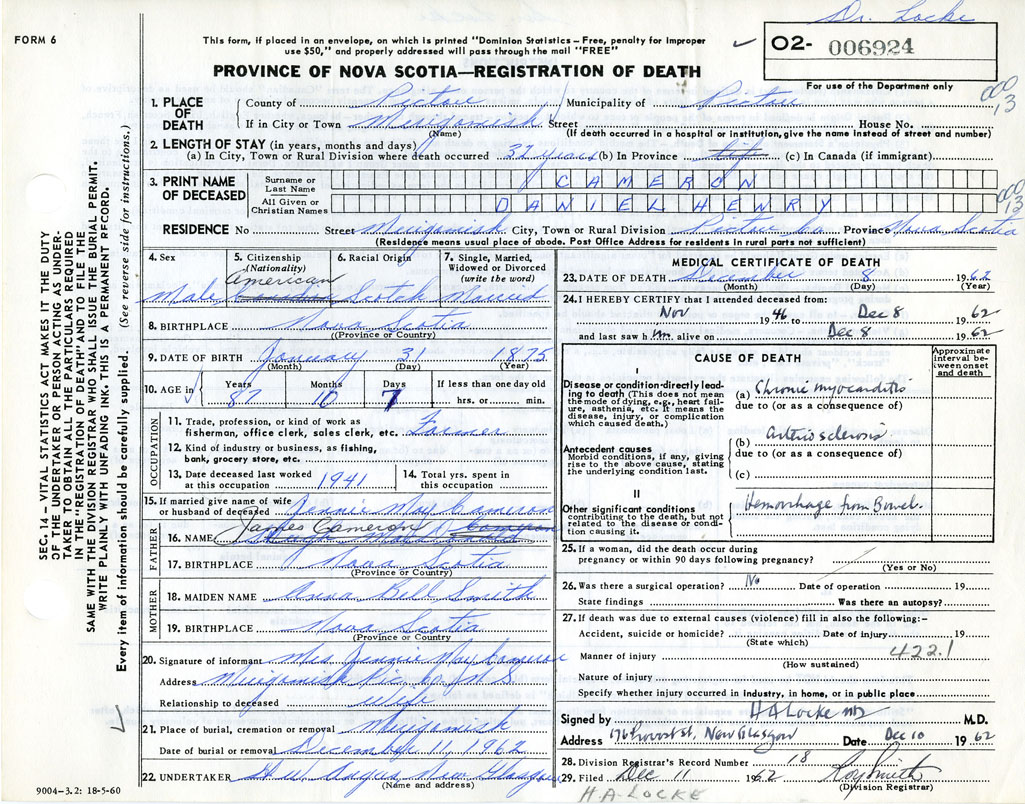 Dr. Locke
FORM 6
This form, if placed in an envelope, on which is printed "Dominion Statistics – Free, penalty for improper
use $50," and properly addressed will pass through the mail "FREE"
✓ 02- 006924
PROVINCE OF NOVA SCOTIA—REGISTRATION OF DEATH
For use of the Department only
1. PLACE OF DEATH
County of Pictou Municipality of Pictou
000 13
If in City or Town Merigomish Street House No.
(Name) (If death occurred in a hospital or institution, give the name instead of street and number)
2. LENGTH OF STAY (in years, months and days)
(a) In City, Town or Rural Division where death occurred 37 years (b) In Province life (c) In Canada (if immigrant)
3. PRINT NAME OF DECEASED
Surname or Last Name CAMERON
All Given or Christian Names DANIEL HENRY
000 13
RESIDENCE No Street Merigomish City, Town or Rural Division Pictou Co Province Nova Scotia
(Residence means usual place of abode. Post Office Address for residents in rural parts not sufficient)
4. Sex
Male
5. Citizenship (Nationality)
American
Canadian
6. Racial Origin
Scotch
7. Single, Married, Widowed or Divorced (write the word)
Married
8. BIRTHPLACE Nova Scotia
(Province or Country)
9. DATE OF BIRTH January 31 1875
(Month) (Day) (Year)
10. AGE in
Years 87 Months 10 Days 7
If less than one day old
hrs. or min.
OCCUPATION
11. Trade, profession, or kind of work as
fisherman, office clerk, sales clerk, etc. Farmer
12. Kind of industry or business, as fishing,
bank, grocery store, etc.
13. Date deceased last worked
at this occupation 1941
14. Total yrs. spent in
this occupation
15. If married give name of wife
or husband of deceased Jennie May Cameron
FATHER
James Cameron
16. NAME
17. BIRTHPLACE Nova Scotia
(Province or Country)
MOTHER
18. MAIDEN NAME Anna Bell Smith
19. BIRTHPLACE Nova Scotia
(Province or Country)
20. Signature of informant Mrs Jennie May Cameron
Address Merigomish Pic Co N S
Relationship to deceased wife
21. Place of burial, cremation or removal Merigomish
Date of burial or removal December 11, 1962
22. UNDERTAKER New Glasgow
(Name and address)
9004–3.2: 18-5-60
MEDICAL CERTIFICATE OF DEATH
23. DATE OF DEATH December 8 1962
(Month) (Day) (Year)
24. I HEREBY CERTIFY that I attended deceased from:
Nov 1946 to Dec 8 1962
and last saw him alive on Dec 8 1962
CAUSE OF DEATH
Approximate interval between onset and death
I
Disease or condition directly leading to death (This does not mean the mode of dying, e.g., heart failure, asthenia, etc. It means the disease, injury, or complication which caused death.)
(a) Chronic myocarditis
due to (or as a consequence of)
Antecedent causes
Morbid conditions, if any, giving rise to the above cause, stating the underlying condition last.
(b) arteriosclerosis
due to (or as a consequence of)
(c)
II
Other significant conditions
contributing to the death, but not related to the disease or condition causing it.
Hemorrhage from Bowel.
25. If a woman, did the death occur during
pregnancy or within 90 days following pregnancy?
(Yes or No)
26. Was there a surgical operation? No Date of operation 19
State findings Was there an autopsy?
27. If death was due to external causes (violence) fill in also the following:–
Accident, suicide or homicide? Date of injury 19
(State which)
Manner of injury 422.1
(How sustained)
Nature of injury
Specify whether injury occurred in industry, in home, or in public place
Signed by H A Locke MD M.D.
Address 176 Provost St, New Glasgow Date Dec 10 1962
28. Division Registrar's Record Number 18
29. Filed Dec 11 1962 Roy Smith
(Division Registrar)
H.A. LOCKE
SEC. 14 – VITAL STATISTICS ACT MAKES IT THE DUTY
OF THE UNDERTAKER OR PERSON ACTING AS UNDER-
TAKER TO OBTAIN ALL THE PARTICULARS REQUIRED
IN THE "REGISTRATION OF DEATH" AND TO FILE THE
SAME WITH THE DIVISION REGISTRAR WHO SHALL ISSUE THE BURIAL PERMIT.
WRITE PLAINLY WITH UNFADING INK. THIS IS A PERMANENT RECORD.
Every item of information should be carefully supplied. (See reverse side for instructions.)